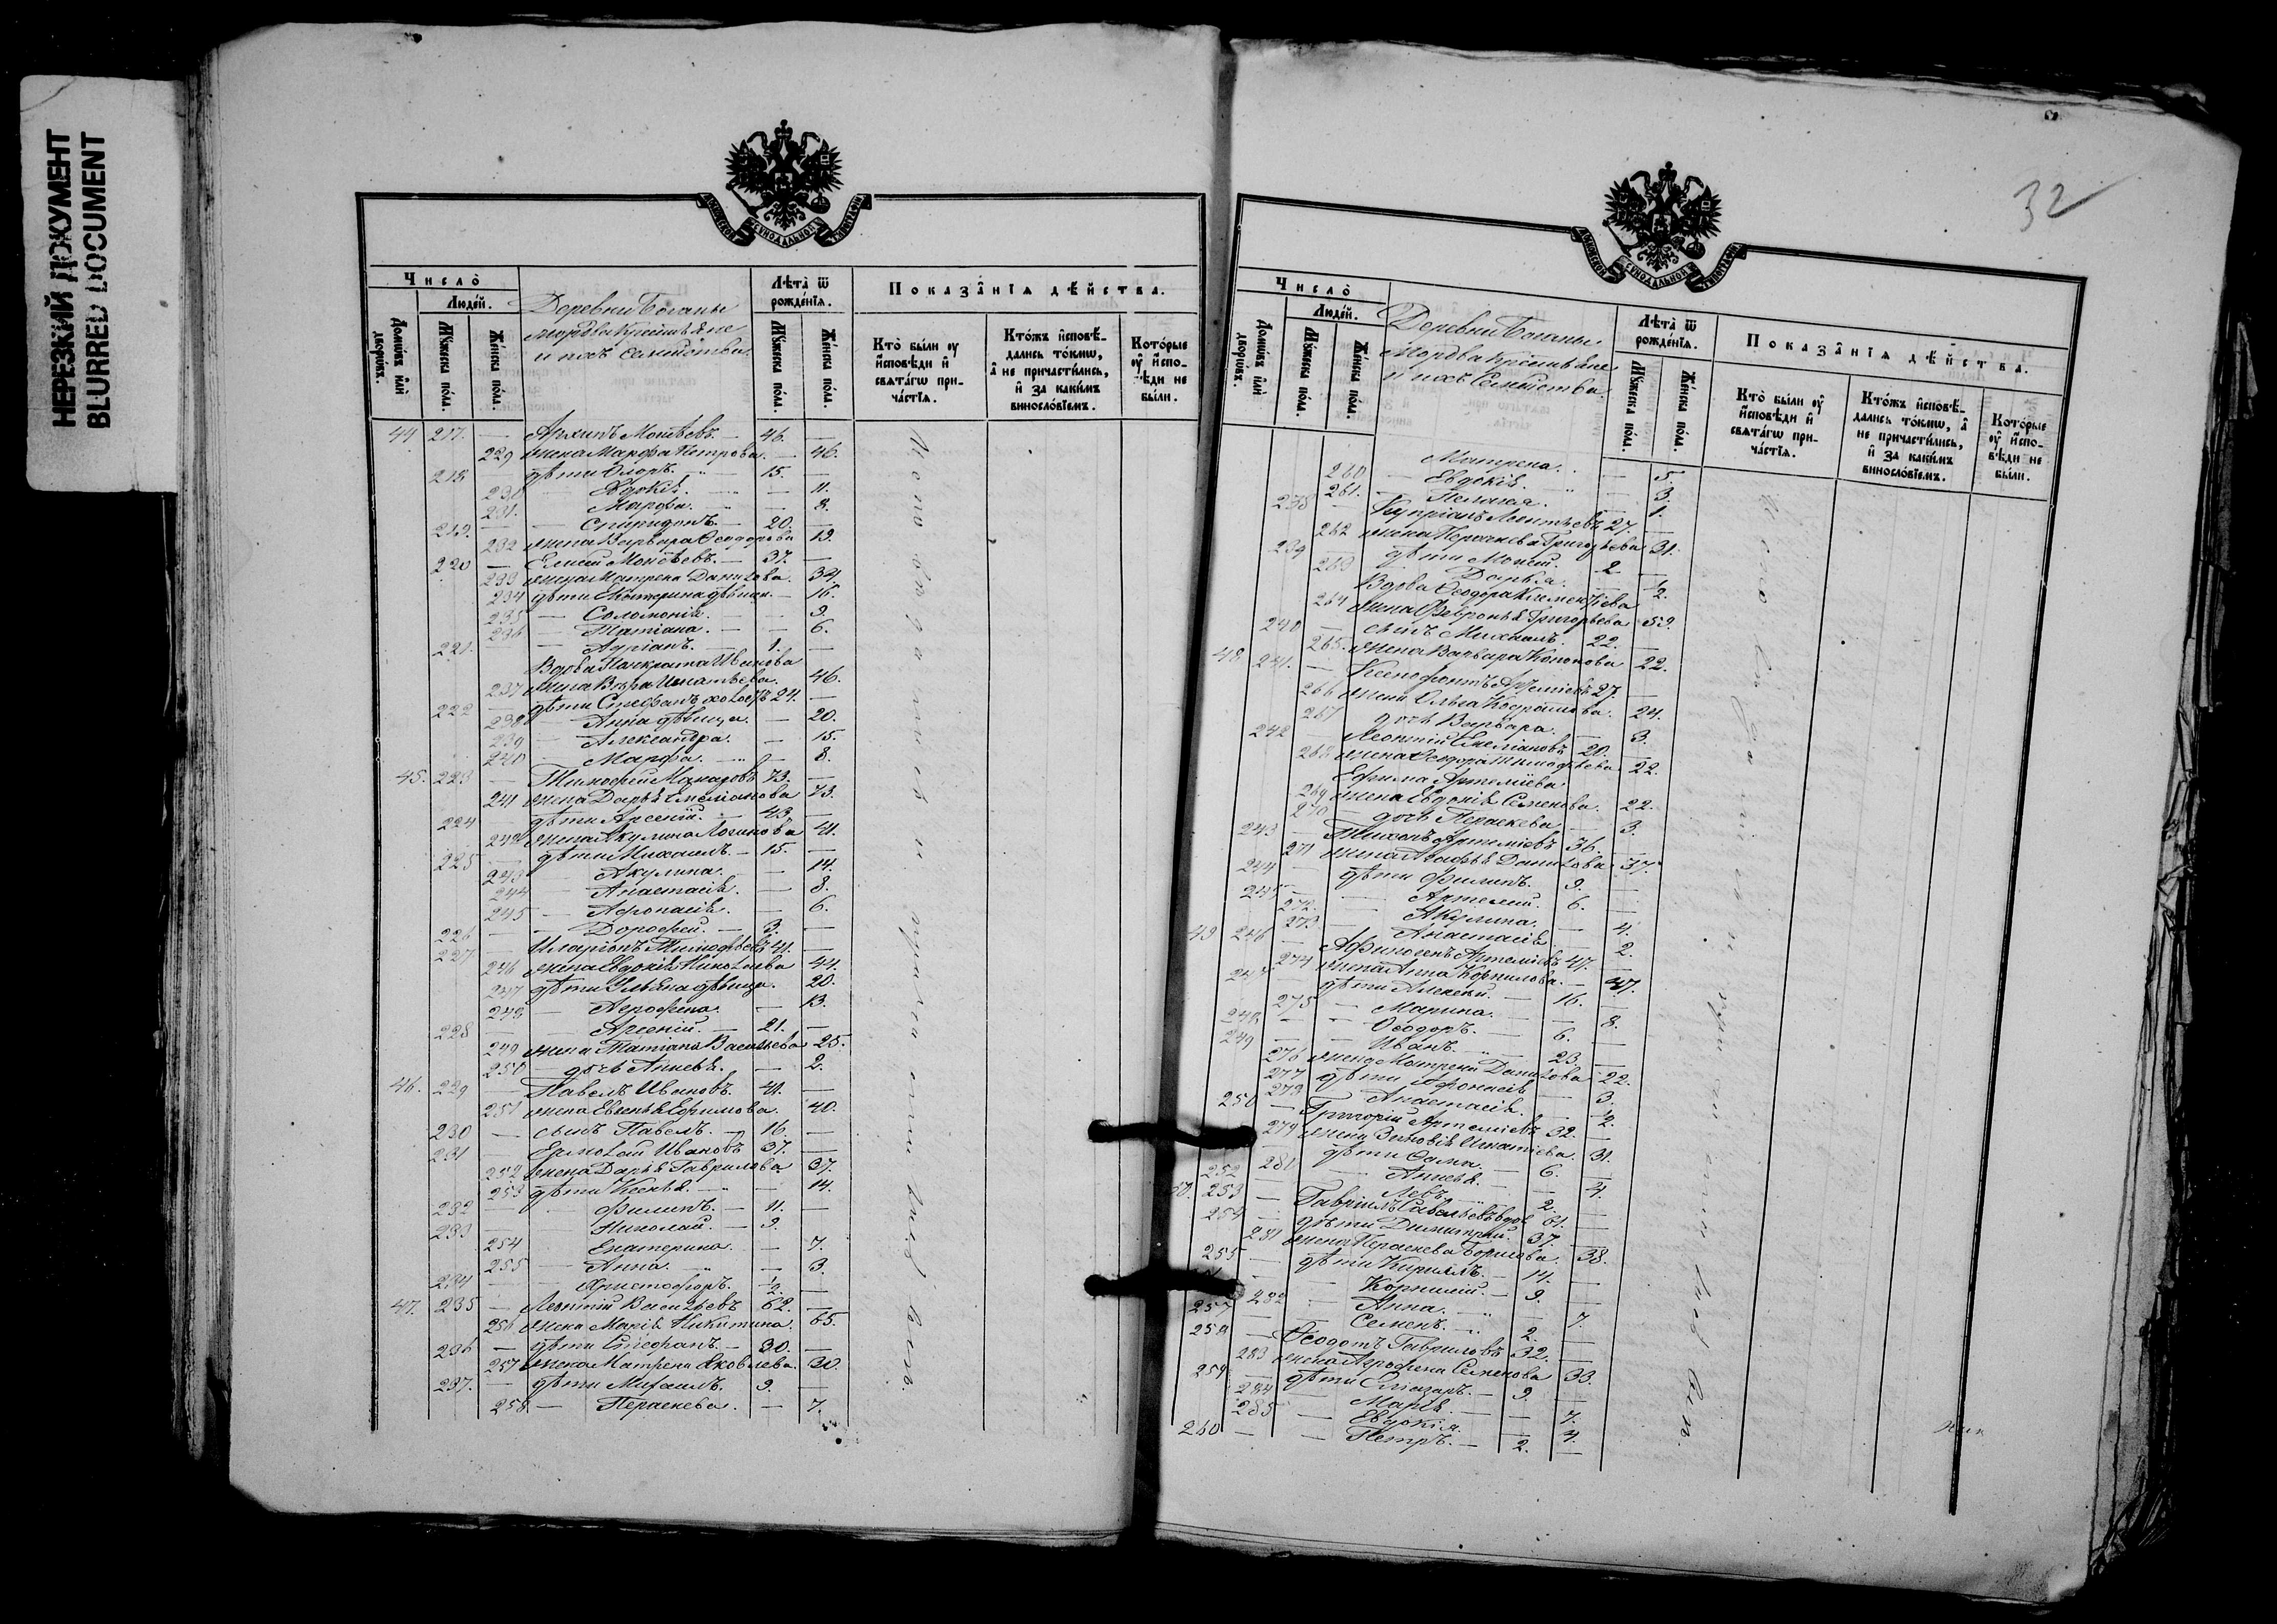 НЕРЕЗКИЙ ДОКУМЕНТ
BLURRED DOCUMENT
МОСКОВСКОЙ СѴНОДАЛЬНОЙ ТИПОГРАФІИ
Число̀
Людє́й.
Домѡ́въ и҆лѝ дворѡ́въ.
Мꙋ́жеска по́ла.
Же́нска по́ла.
Деревни Боганы
мордва крестьяне
и ихъ семейства.
Лѣ́та ѿ рожде́нїѧ.
Мꙋ́жеска по́ла.
Же́нска по́ла.
Показа̑нїѧ дѣ́йства.
Кто̀ бы́ли ᲂу҆ и҆сповѣ́ди и҆ свѧта́гѡ причⷭ҇тїѧ.
Кто́жъ и҆сповѣ́дались то́кмѡ, а҆ не причасти́лись, и҆ за каки́мъ винослові́емъ.
Кото́рые ᲂу҆ и҆сповѣ́ди не бы́ли.
44 217. — Архипъ Моисѣевъ. 46. —
229 жена Марфа Петрова. — 46.
218 дѣти Флоръ. 15. —
230 — Евдокія. — 11.
231. — Марфа. — 8.
219. — Спиридонъ. 20. —
232 жена Варвара Ѳеодорова 19.
220 — Елисей Моисѣевъ. 37. —
233 жена Матрена Данилова. 34.
234 дѣти Екатерина дѣвица — 16.
235 — Соломонія. — 9.
236 — Татіана. — 6.
221. — Адріанъ. 1. —
Вдова Панкрата Иванова
237 жена Вѣра Игнатьева. 46.
222 — дѣти Стефанъ холостъ 24. —
238 — Анна дѣвица. — 20.
239 — Александра. — 15.
240 — Марфа. — 8.
45. 223 — Тимофей Макаровъ 73. —
241 жена Дарья Емеліанова 73.
224 — дѣти Арсеній. 43. —
242 жена Акулина Логинова 41.
225 — дѣти Михаилъ. 15. —
243 — Акулина. — 14.
244 — Анастасія. — 8.
245 — Афонасія. — 6.
226 — Дорофей. 3. —
227 — Иларіонъ Тимофѣевъ 41. —
246 жена Евдокія Николаева 44.
247 дѣти Ульяна дѣвица. 20.
248 — Агрофена. — 13.
228 — Арсеній. 21. —
249 жена Татіана Васильева 25.
250 — дочь Анисья. — 2.
46. 229 — Павелъ Ивановъ. 41. —
251 жена Евгенія Ефимова. 40.
230 — сынъ Павелъ. 16. —
231 — Ермолай Ивановъ 37. —
252 жена Дарья Гаврилова 37.
253 дѣти Ксенья. — 14.
232 — Филипъ. 11. —
233 — Николай. 9. —
254 — Екатерина. — 7.
255 — Анна. — 3.
234 — Христофоръ. 1/2. —
47. 235 — Леонтій Васильевъ 62. —
256 жена Марія Никитина. 65.
236 — дѣти Стефанъ. 30. —
257 жена Матрена Яковлева. 30.
237. — дѣти Михаилъ. 9. —
258. — Параскева. — 7.
32
Число̀
Людє́й.
Домѡ́въ и҆лѝ дворѡ́въ.
Мꙋ́жеска по́ла.
Же́нска по́ла.
Деревни Боганы
Мордва крестьяне
и ихъ семейства.
Лѣ́та ѿ рожде́нїѧ.
Мꙋ́жеска по́ла.
Же́нска по́ла.
Показа̑нїѧ дѣ́йства.
Кто̀ бы́ли ᲂу҆ и҆сповѣ́ди и҆ свѧта́гѡ причⷭ҇тїѧ.
Кто́жъ и҆сповѣ́дались то́кмѡ, а҆ не причасти́лись, и҆ за каки́мъ винослові́емъ.
Кото́рые ᲂу҆ и҆сповѣ́ди не бы́ли.
Матрена. — 5.
260 — Евдокія. — 3.
261. — Пелагея. — 1.
238 — Купріанъ Леонтьевъ 27. —
262 жена Параскева Григорьева 31.
239 дѣти Моисей. 2 —
263 — Дарья. — 1/2.
Вдова Ѳеодора Климентіева
264 жена Февронья Григорьева 59.
240 — сынъ Михаилъ. 22. —
265. жена Варвара Кононова 22.
48 241. — Ксенофонтъ Артеміевъ 27. —
266 жена Ольга Кодратова. 24.
267 дочь Варвара. — 3.
242 — Леонтій Емеліановъ 20. —
268 жена Ѳеодора Тимофѣева 22.
Ефима Артеміева
269 жена Евдокія Семенова. 22.
270 дочь Параскева — 3.
243 — Тихонъ Артеміевъ 36. —
271 жена Агафья Данилова. 37.
244 — дѣти Филипъ. 9. —
245 — Артемій. 6. —
272. — Акулина. — 4.
273 — Анастасія. — 2.
49 246 — Афиногенъ Артеміевъ 47. —
274 жена Анна Корнилова. 47.
247 — дѣти Алексѣй. 16. —
275 — Марина. — 8.
248 — Ѳеодоръ. 6. —
249 — Иванъ. 23. —
276 жена Матрена Данилова 22.
277 дѣти Афонасія — 3.
278 — Анастасія. — 1/2.
250 — Григорій Артеміевъ 32. —
279 жена Зиновія Игнатіева. 31.
дѣти Ѳома. 6. —
280 — Анисья. — 4.
252 — Левъ. 2. —
50. 253 — Гавріилъ Савельевъ вдов 61. —
254 — дѣти Димитрій. 37. —
281 жена Параскева Борисова. 38.
255 — дѣти Кирилъ. 14. —
— Корнилій. 9. —
282 — Анна. — 7.
257 — Семенъ. 2. —
258 — Ѳеодотъ Гавриловъ 32. —
283 жена Агрофена Семенова 33.
259 — дѣти Елиазаръ. 9. —
284 — Марія. — 7.
285 — Евдокія. — 4.
260 — Петръ. 2. —